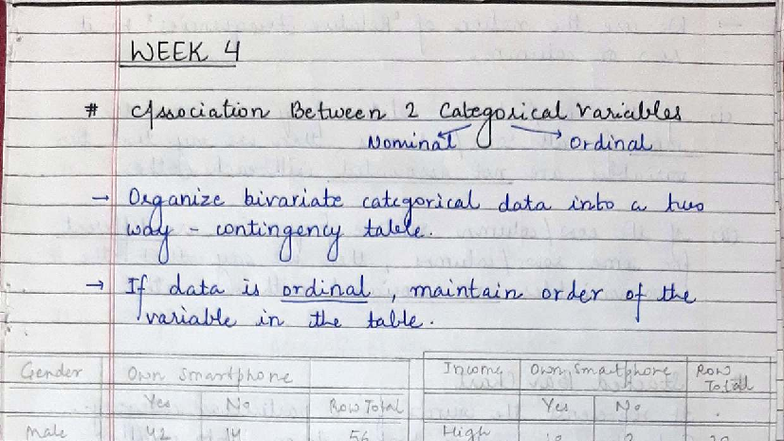 WEEK 4
# Association Between 2 Categorical Variables
Nominal Ordinal
→ Organize bivariate categorical data into a two
way - contingency table.
→ If data is ordinal, maintain order of the
variable in the table.
Gender Own Smartphone
Yes No Row Total
Male 42 14 56
Income Own Smartphone Row Total
Yes No
High